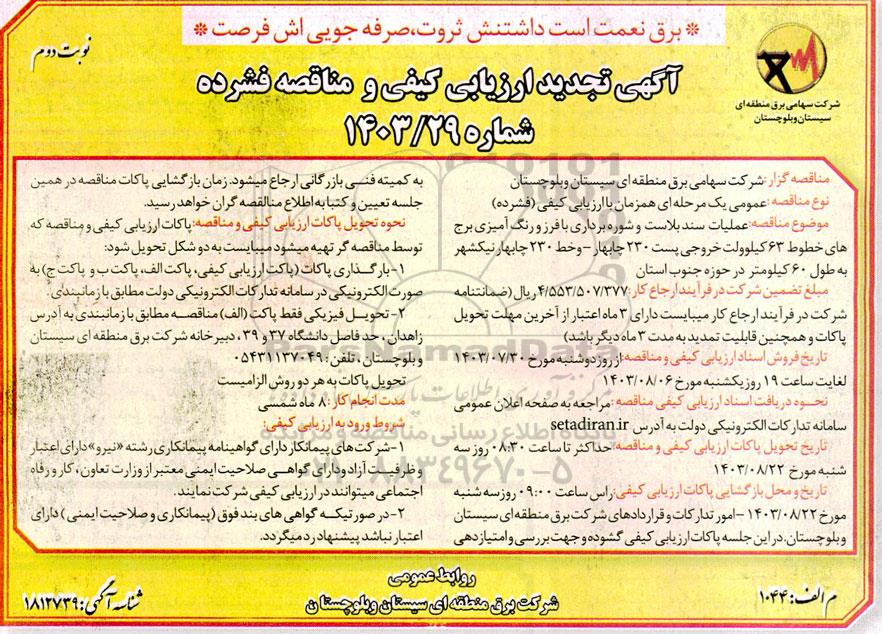 * برق نعمت است داشتنش ثروت،صرفه جویی اش فرصت *
نوبت دوم
شرکت سهامی برق منطقه ای
سیستان وبلوچستان
آگهی تجدید ارزیابی کیفی و مناقصه فشرده
شماره ۱۴۰۳/۲۹
مناقصه گزار:شرکت سهامی برق منطقه ای سیستان وبلوچستان
نوع مناقصه :عمومی یک مرحله ای همزمان با ارزیابی کیفی (فشرده)
موضوع مناقصه:عملیات سندبلاست و شوره برداری با فرز و رنگ آمیزی برج
های خطوط ۶۳ کیلوولت خروجی پست ۲۳۰ چابهار -وخط ۲۳۰ چابهار نیکشهر
به طول ۶۰ کیلومتر در حوزه جنوب استان
مبلغ تضمین شرکت در فرآیند ارجاع کار :۴/۵۵۳/۵۰۷/۳۷۷ ریال (ضمانتنامه
شرکت در فرآیند ارجاع کار میبایست دارای ۳ ماه اعتبار از آخرین مهلت تحویل
پاکات و همچنین قابلیت تمدید به مدت ۳ ماه دیگر باشد)
تاریخ فروش اسناد ارزیابی کیفی و مناقصه:از روز دوشنبه مورخ ۱۴۰۳/۰۷/۳۰
لغایت ساعت ۱۹ روز یکشنبه مورخ ۱۴۰۳/۰۸/۰۶
نحوه دریافت اسناد ارزیابی کیفی مناقصه:مراجعه به صفحه اعلان عمومی
سامانه تدارکات الکترونیکی دولت به آدرس setadiran.ir
تاریخ تحویل پاکات ارزیابی کیفی و مناقصه:حداکثر تا ساعت ۰۸:۳۰ روز سه
شنبه مورخ ۱۴۰۳/۰۸/۲۲
تاریخ و محل بازگشایی پاکات ارزیابی کیفی:راس ساعت ۰۹:۰۰ روز سه شنبه
مورخ ۱۴۰۳/۰۸/۲۲ -امور تدارکات و قراردادهای شرکت برق منطقه ای سیستان
وبلوچستان.در این جلسه پاکات ارزیابی کیفی گشوده و جهت بررسی و امتیازدهی
به کمیته فنی بازرگانی ارجاع میشود. زمان بازگشایی پاکات مناقصه در همین
جلسه تعیین و کتبا به اطلاع منالقصه گران خواهد رسید.
نحوه تحویل پاکات ارزیابی کیفی و مناقصه:پاکات ارزیابی کیفی و مناقصه که
توسط مناقصه گر تهیه میشود میبایست به دو شکل تحویل شود:
۱-بارگذاری پاکات (پاکت ارزیابی کیفی، پاکت الف، پاکت ب و پاکت ج) به
صورت الکترونیکی در سامانه تدارکات الکترونیکی دولت مطابق با زمانبندی.
۲-تحویل فیزیکی فقط پاکت (الف) مناقصه مطابق با زمانبندی به آدرس
زاهدان ، حد فاصل دانشگاه ۳۷ و ۳۹ ، دبیرخانه شرکت برق منطقه ای سیستان
و بلوچستان ، تلفن : ۰۵۴۳۱۱۳۷۰۴۹
تحویل پاکات به هر دو روش الزامیست
مدت انجام کار : ۸ ماه شمسی
شروط ورود به ارزیابی کیفی:
۱-شرکت های پیمانکار دارای گواهینامه پیمانکاری رشته «نیرو»دارای اعتبار
و ظرفیت آزاد ودارای گواهی صلاحیت ایمنی معتبر از وزارت تعاون ، کار و رفاه
اجتماعی میتوانند در ارزیابی کیفی شرکت نمایند.
۲-در صورتیکه گواهی های بند فوق (پیمانکاری و صلاحیت ایمنی ) دارای
اعتبار نباشد پیشنهاد رد میگردد.
روابط عمومی
شرکت برق منطقه ای سیستان وبلوچستان
م الف: ۱۰۴۴
شناسه آگهی: ۱۸۱۲۷۳۹